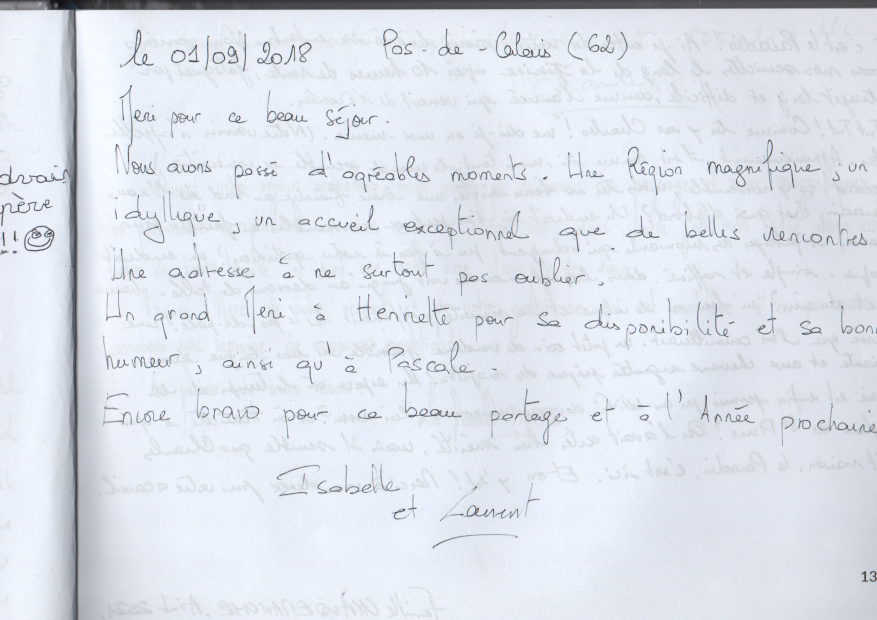 le 01/09/2018 Pas-de-Calais (62)
Merci pour ce beau séjour.
Nous avons passé d'agréables moments. Une Région magnifique, un
idyllique, un accueil exceptionnel que de belles rencontres
Une adresse à ne surtout pas oublier.
Un grand Merci à Henriette pour sa disponibilité et sa bonn
humeur, ainsi qu'à Pascale.
Encore bravo pour ce beau partage et à l'Année prochaine
Isabelle
et Laurent
13
père
!!